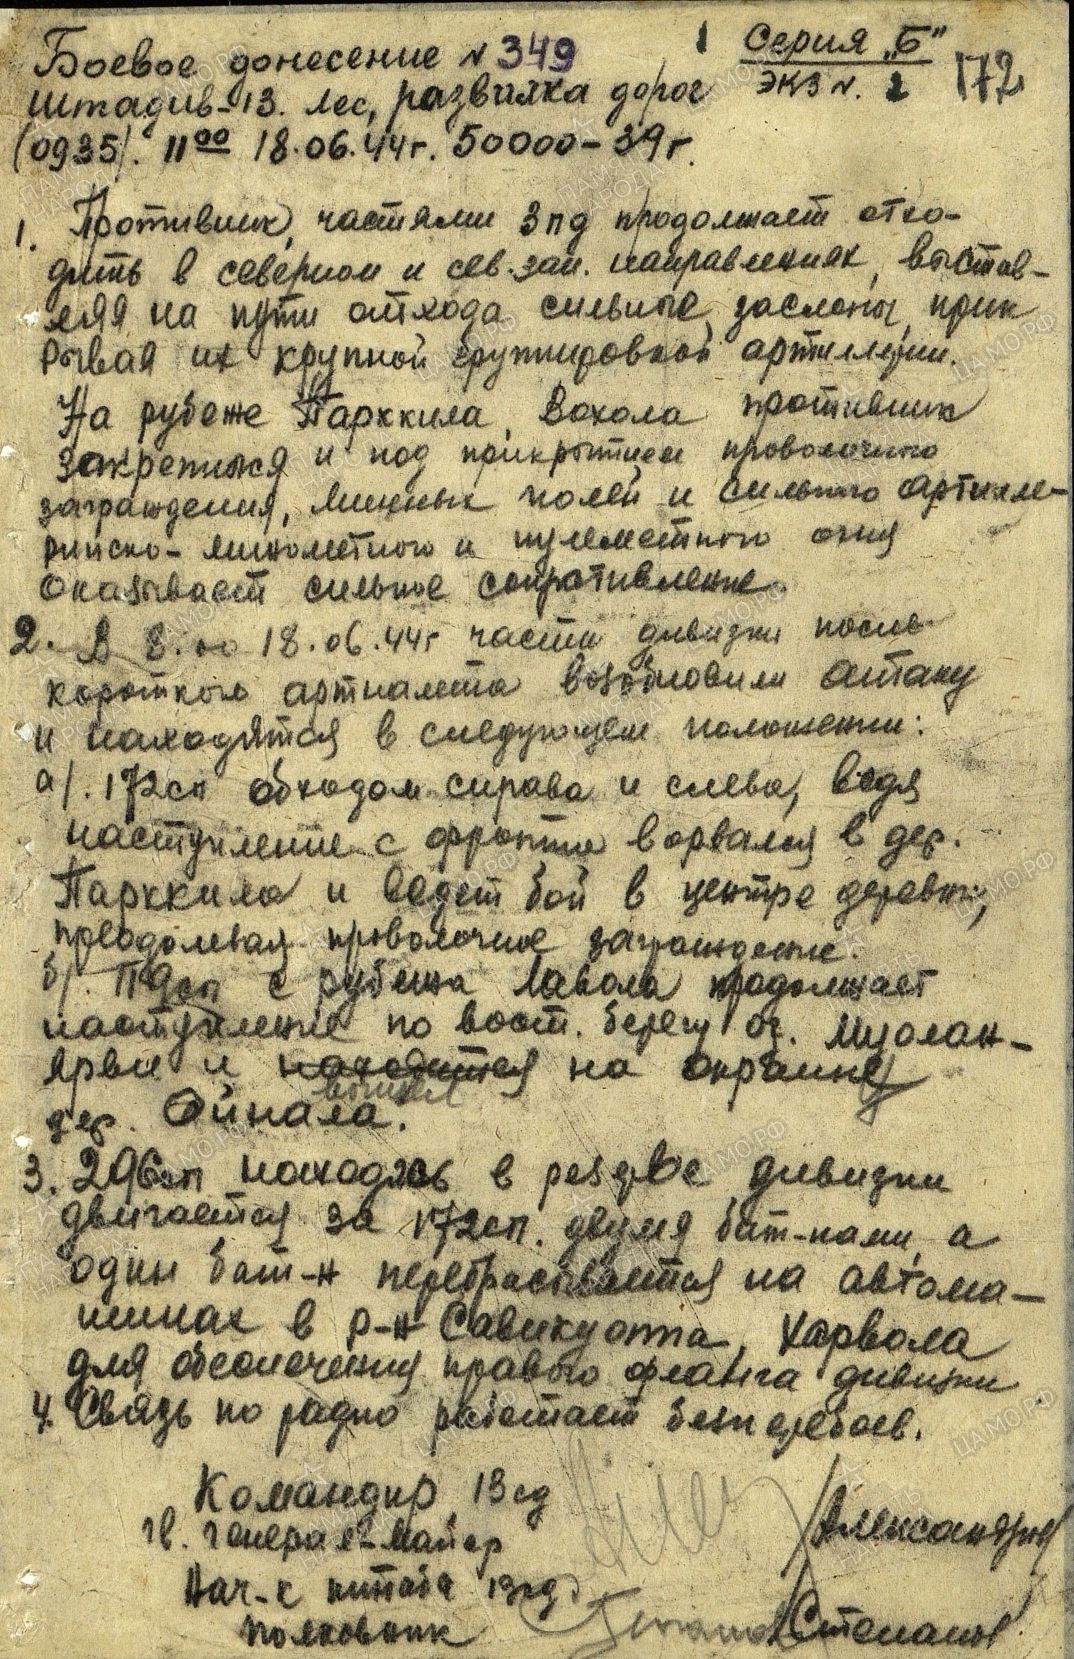 Боевое донесение № 349
1 Серия „Б"
экз №. 2
172
Штадив-13. лес, развилка дорог
(0935). 11⁰⁰ 18.06.44г. 50000-39г.
1. Противник, частями 3пд продолжает отхо-
дить в северном и сев.зап. направлениях, выстав-
ляя на пути отхода сильные заслоны, прик
рывая их крупной группировкой артиллерии.
На рубеже Парккила, Вохола противник
закрепился и под прикрытием проволочного
заграждения, минных полей и сильного артилле-
рийско-минометного и пулеметного огня
оказывает сильное сопротивление.
2. В 8.00 18.06.44г части дивизии после
короткого артналета возобновили атаку
и находятся в следующем положении:
а). 172сп обходом справа и слева, ведя
наступление с фронта ворвался в дер.
Парккила и ведет бой в центре деревни,
преодолевая проволочное заграждение.
б). 119сп с рубежа Лавола продолжает
наступление по вост. берегу оз. Муолан-
ярви и находится на окраину
вышел
дер. Ойнала.
3. 296сп находясь в резерве дивизии
двигается за 172сп. двумя бат-нами, а
один бат-н перебрасывается на автома-
шинах в р-н Савикуопта, Харвола
для обеспечения правого фланга дивизии
4. Связь по радио работает безперебоев.
Командир 13сд
гв. генерал-майор
Александров
Нач-к штаба 13сд
полковник
Степанов
ЦАМО.РФ
ПАМЯТЬ НАРОДА